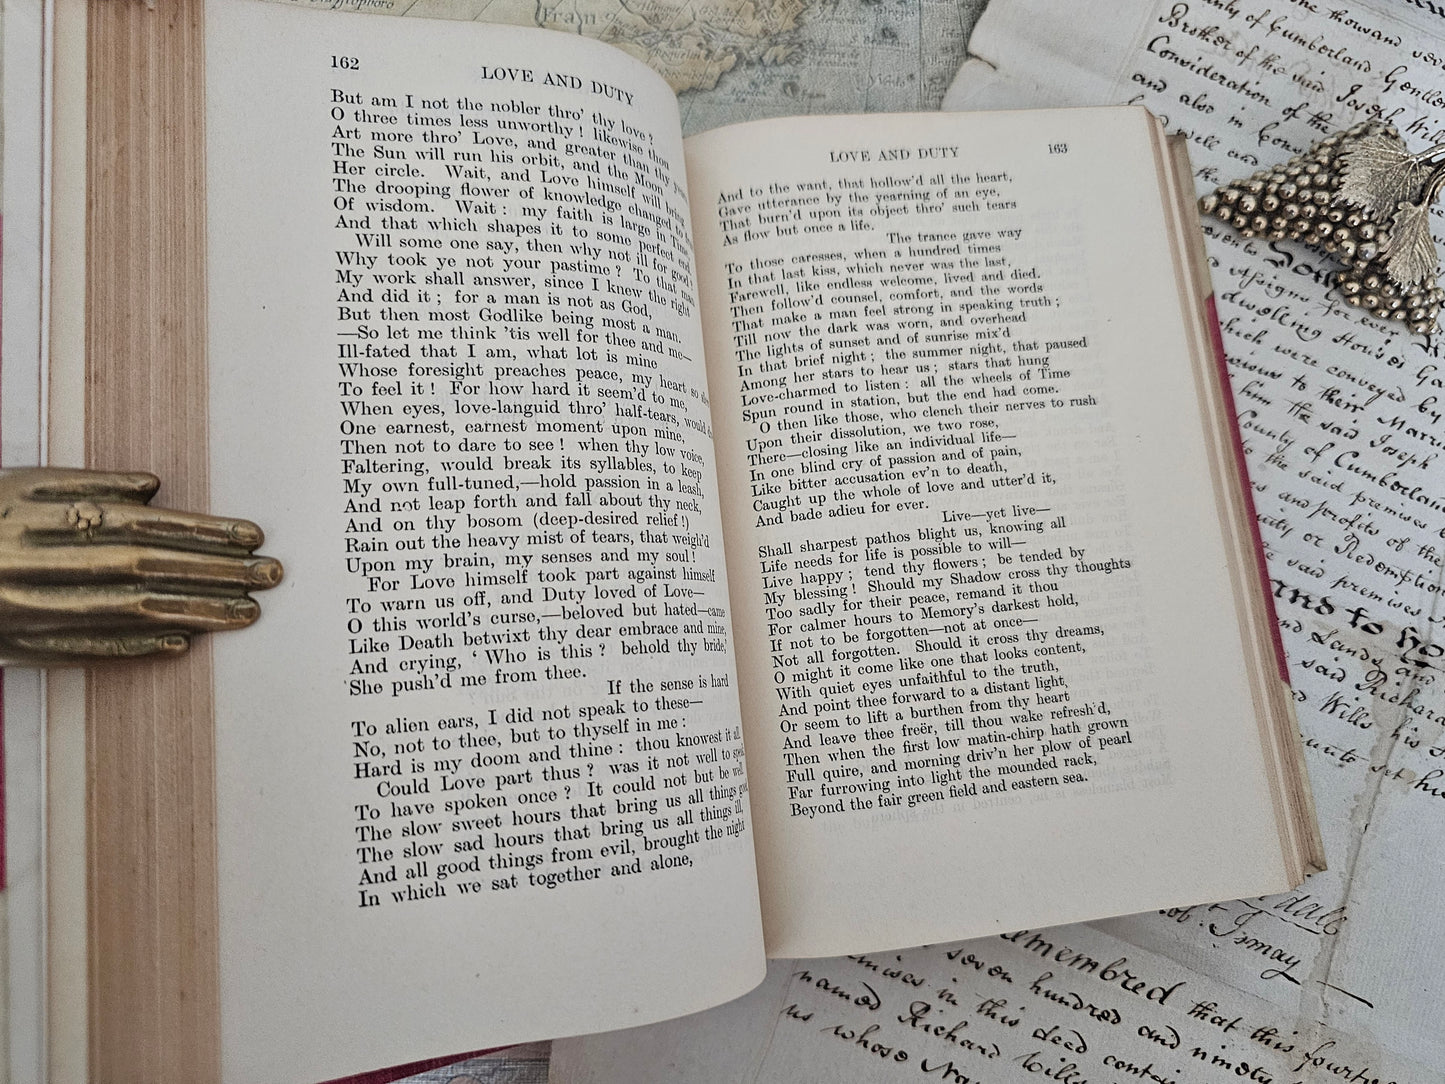 162
LOVE AND DUTY
But am I not the nobler thro' thy love?
O three times less unworthy! likewise thou
Art more thro' Love, and greater than thy
The Sun will run his orbit, and the Moon
Her circle. Wait, and Love himself will bring
The drooping flower of knowledge changed to
Of wisdom. Wait: my faith is large in Time,
And that which shapes it to some perfect end.
Will some one say, then why not ill for good?
Why took ye not your pastime? To that man
My work shall answer, since I knew the right
And did it; for a man is not as God,
But then most Godlike being most a man.
—So let me think 'tis well for thee and me—
Ill-fated that I am, what lot is mine
Whose foresight preaches peace, my heart so
To feel it! For how hard it seem'd to me,
When eyes, love-languid thro' half-tears, would
One earnest, earnest moment upon mine,
Then not to dare to see! when thy low voice,
Faltering, would break its syllables, to keep
My own full-tuned,—hold passion in a leash,
And not leap forth and fall about thy neck,
And on thy bosom (deep-desired relief!)
Rain out the heavy mist of tears, that weigh'd
Upon my brain, my senses and my soul!
For Love himself took part against himself
To warn us off, and Duty loved of Love—
O this world's curse,—beloved but hated—came
Like Death betwixt thy dear embrace and mine,
And crying, 'Who is this? behold thy bride,'
She push'd me from thee.
If the sense is hard
To alien ears, I did not speak to these—
No, not to thee, but to thyself in me:
Hard is my doom and thine: thou knowest it all.
Could Love part thus? was it not well to speak,
To have spoken once? It could not but be well.
The slow sweet hours that bring us all things good,
The slow sad hours that bring us all things ill,
And all good things from evil, brought the night
In which we sat together and alone,
LOVE AND DUTY
163
And to the want, that hollow'd all the heart,
Gave utterance by the yearning of an eye,
That burn'd upon its object thro' such tears
As flow but once a life.
The trance gave way
To those caresses, when a hundred times
In that last kiss, which never was the last,
Farewell, like endless welcome, lived and died.
Then follow'd counsel, comfort, and the words
That make a man feel strong in speaking truth;
Till now the dark was worn, and overhead
The lights of sunset and of sunrise mix'd
In that brief night; the summer night, that paused
Among her stars to hear us; stars that hung
Love-charmed to listen: all the wheels of Time
Spun round in station, but the end had come.
O then like those, who clench their nerves to rush
Upon their dissolution, we two rose,
There—closing like an individual life—
In one blind cry of passion and of pain,
Like bitter accusation ev'n to death,
Caught up the whole of love and utter'd it,
And bade adieu for ever.
Live—yet live—
Shall sharpest pathos blight us, knowing all
Life needs for life is possible to will—
Live happy; tend thy flowers; be tended by
My blessing! Should my Shadow cross thy thoughts
Too sadly for their peace, remand it thou
For calmer hours to Memory's darkest hold,
If not to be forgotten—not at once—
Not all forgotten. Should it cross thy dreams,
O might it come like one that looks content,
With quiet eyes unfaithful to the truth,
And point thee forward to a distant light,
Or seem to lift a burthen from thy heart
And leave thee freër, till thou wake refresh'd,
Then when the first low matin-chirp hath grown
Full quire, and morning driv'n her plow of pearl
Far furrowing into light the mounded rack,
Beyond the fair green field and eastern sea.
one thousand
of Cumberland Gentle
Brother of the said Joseph Will
Consideration of the
and also in
well and the
Assigns for ever
dwelling Houses
which were conveyed by
to their
him the said Joseph
County of Cumberland
to the said premises
and profits of the
or Redemption
said premises
and to
Lands, and
said Richard
Wills his
unto
Ismay
remembred that this
seven hundred and ninety
in this deed
named Richard Wills
us whose